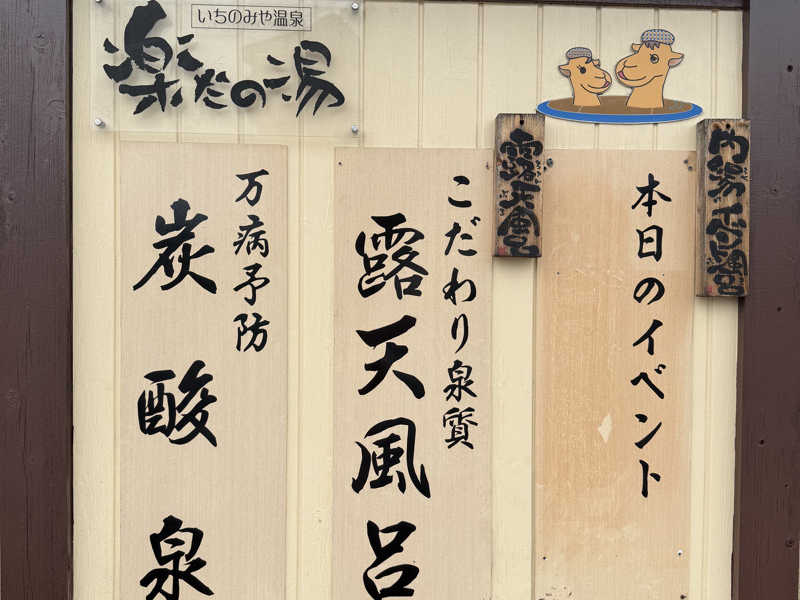 いちのみや温泉
楽だの湯
本日のイベント
内湯
露天風呂
こだわり泉質
露天風呂
万病予防
炭酸泉